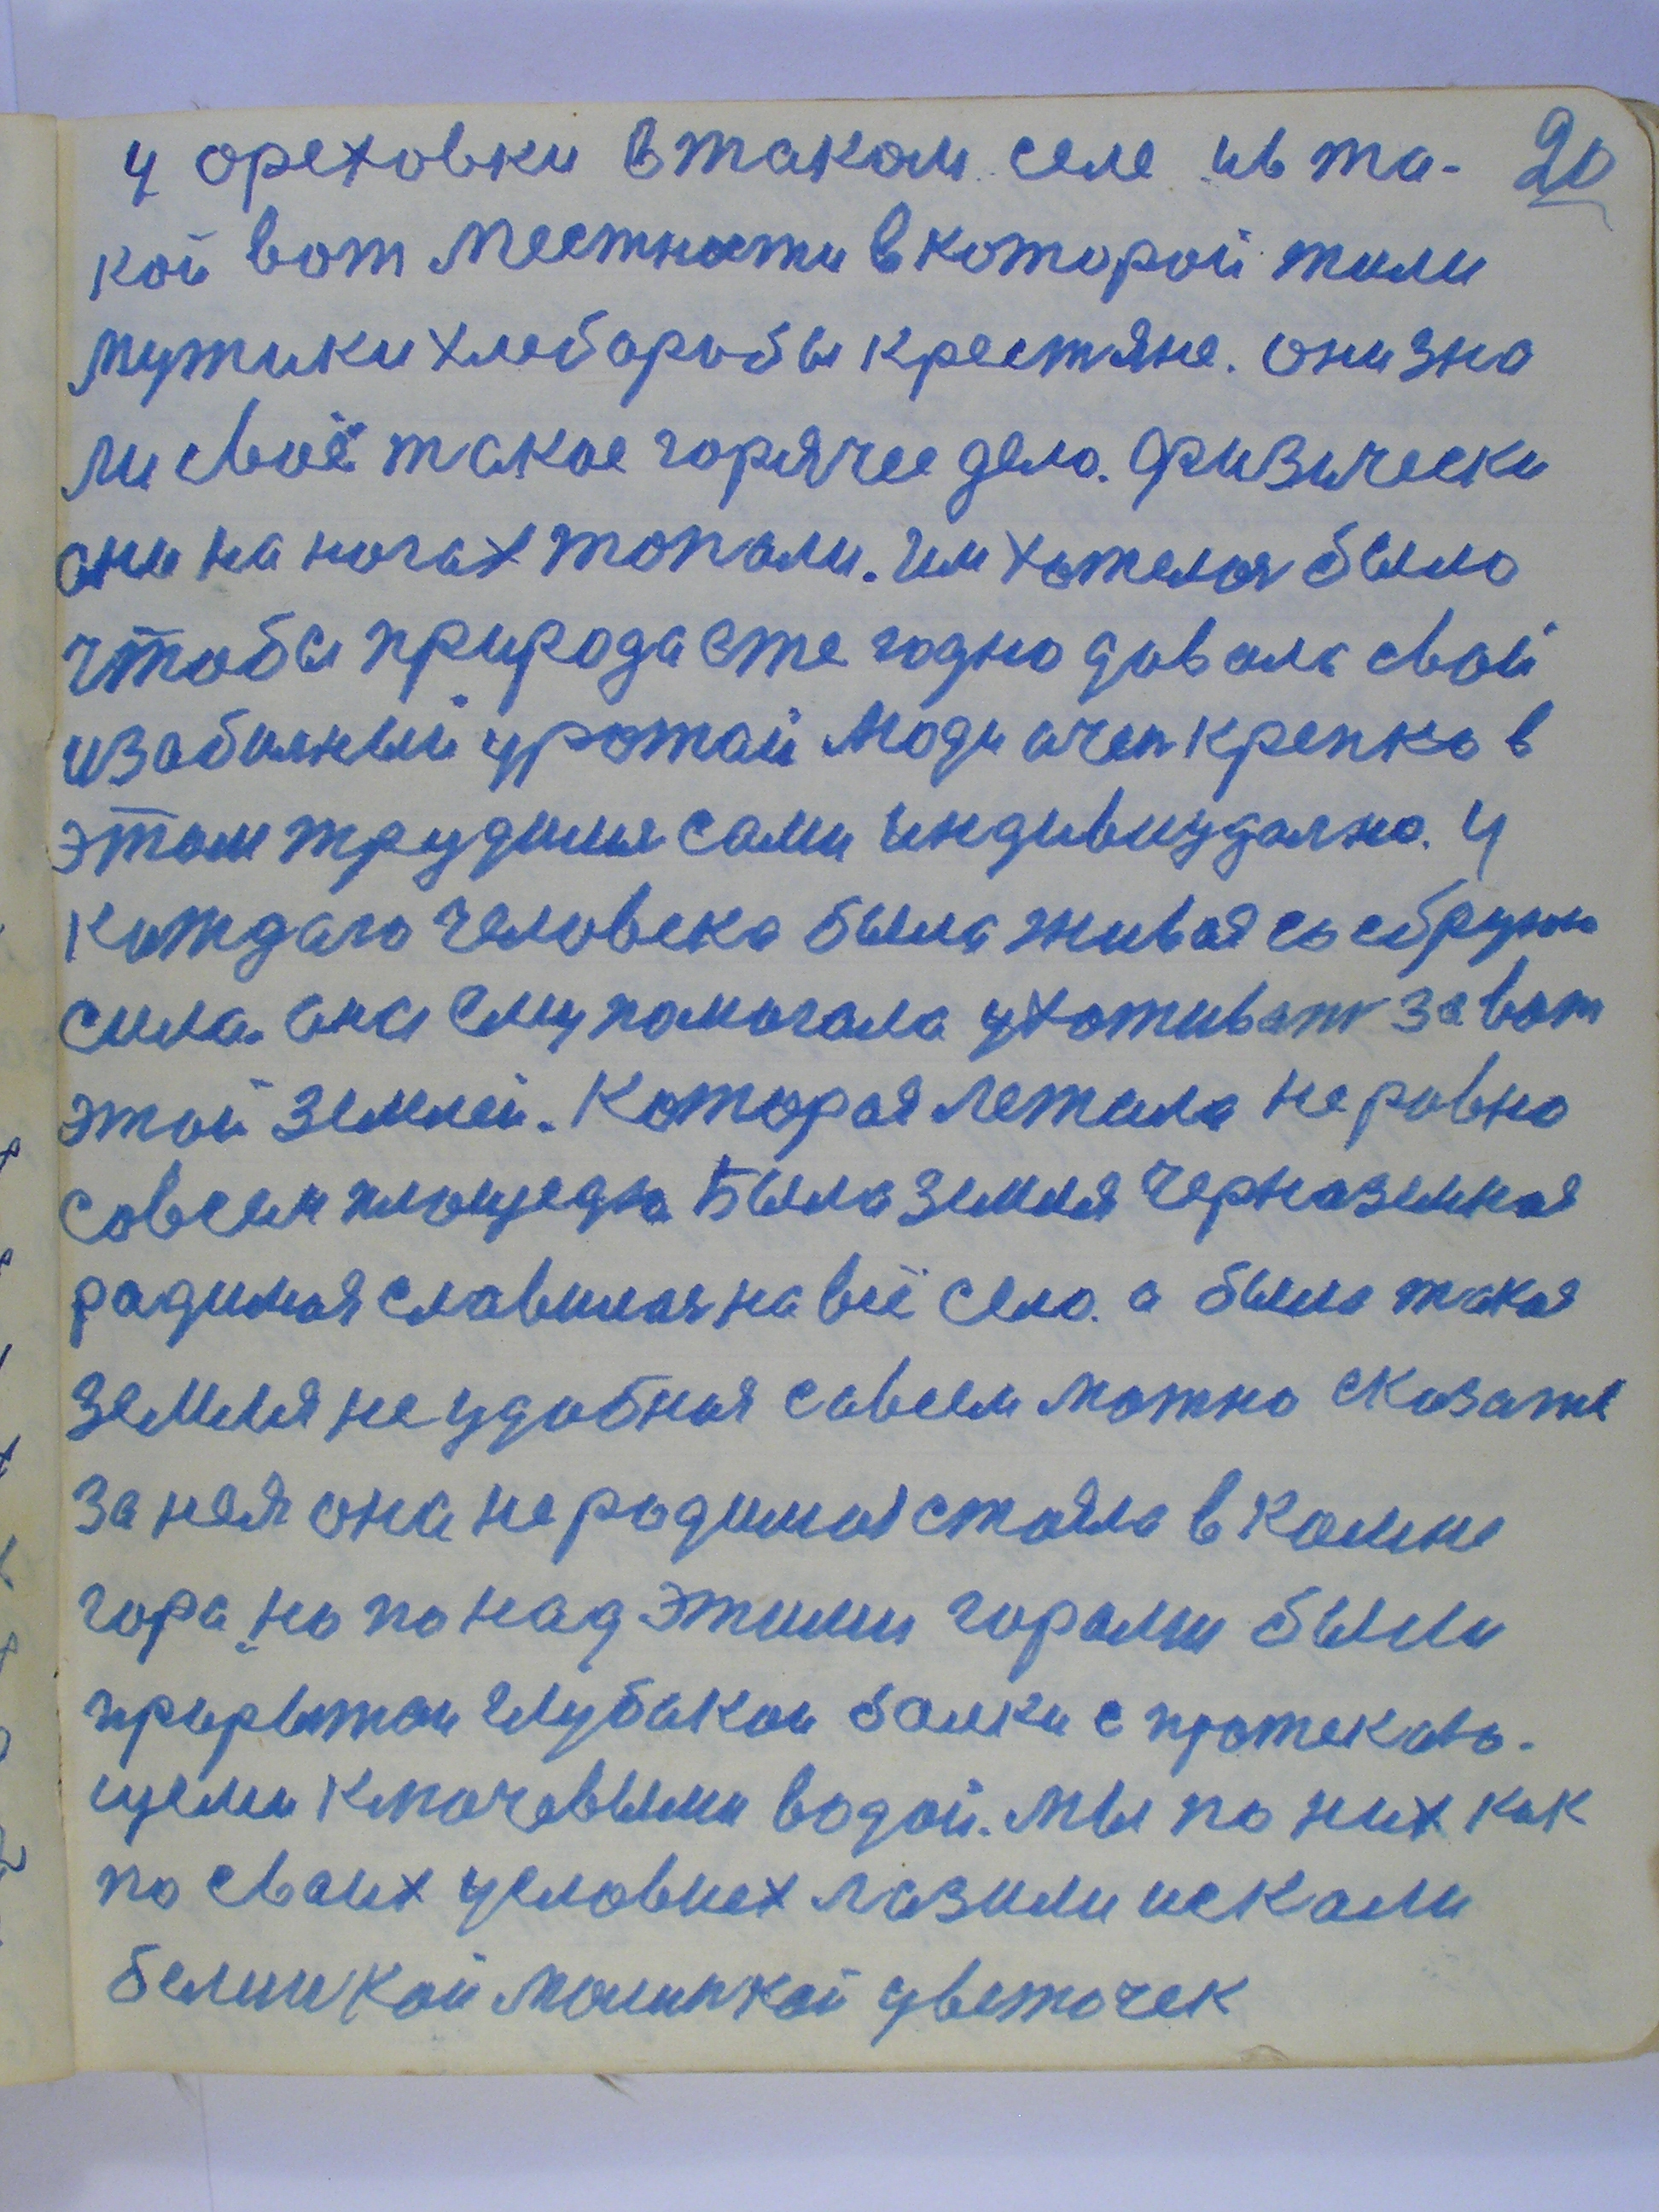 у ореховки в таком селе ив та- 20
кой вот местности в которой жили
мужики хлеборобы крестяне. они зна
ли своё такое горячее дело. физически
они на ногах топали. им хотелоя было
чтобы природа еже годно давала свой
изобилный урожай люди очен крепко в
этом трудилия сами индивиудално. у
каждаго человека была живая со сбруию
сила. она ему помогала ухоживат за вот
этой землей. Которая лежала не ровно
совсем площедю Была земля черназемная
радимая славилая на всё село. а была такая
земля не удобная савсем можно сказате
за нея она не родимая стояла в камне
гора но по над этими горами были
прирытои глубокои балки с протекаю-
щеми ключевыми водой. мы по них как
по своих условиех лазили искали
белинкой малинкой цветочек